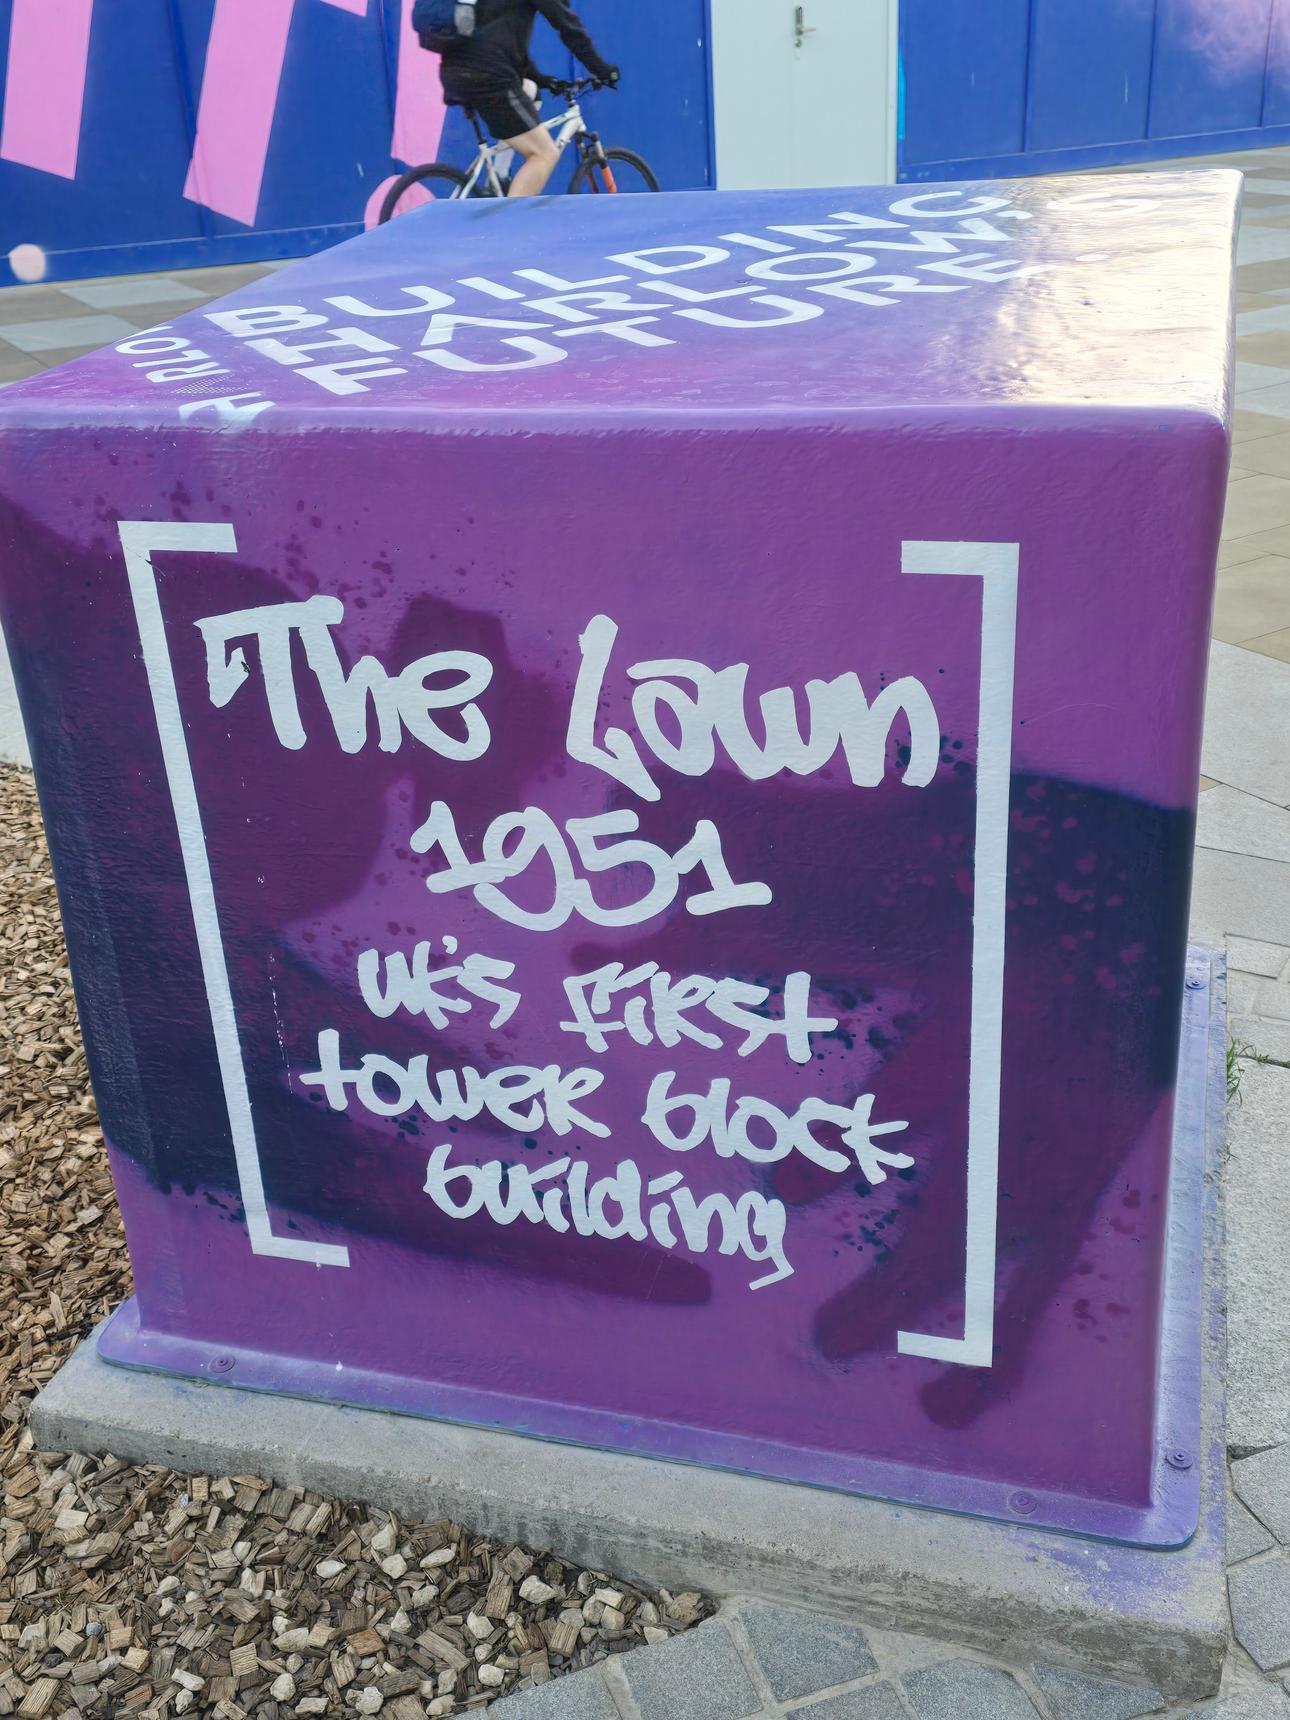 BUILDING
HARLOW'S
FUTURE.
The Lawn
1951
UK's first
tower block
building